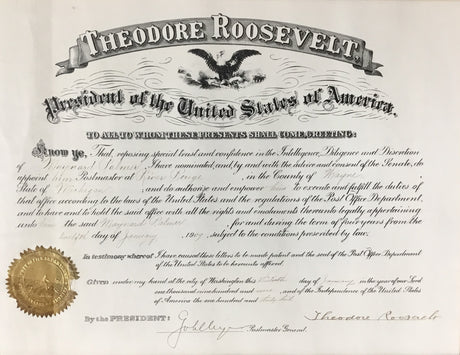 THEODORE ROOSEVELT,
President of the United States of America.
TO ALL TO WHOM THESE PRESENTS SHALL COME, GREETING:
Know ye, That, reposing special trust and confidence in the Intelligence, Diligence and Discretion
of Palmer, I have nominated, and, by and with the advice and consent of the Senate, do
appoint him Postmaster at River Rouge, in the County of Wayne
State of Michigan, and do authorize and empower him to execute and fulfill the duties of
that office according to the laws of the United States and the regulations of the Post Office Department,
and to have and to hold the said office with all the rights and emoluments thereunto legally appertaining
unto him the said Palmer, for and during the term of four years from the
day of January, 1909, subject to the conditions prescribed by law.
In testimony whereof I have caused these letters to be made patent and the seal of the Post Office Department
of the United States to be hereunto affixed.
Given under my hand at the city of Washington this day of January in the year of our Lord
one thousand nine hundred and nine, and of the Independence of the United States
of America the one hundred and
By the PRESIDENT:
Theodore Roosevelt
Postmaster General.